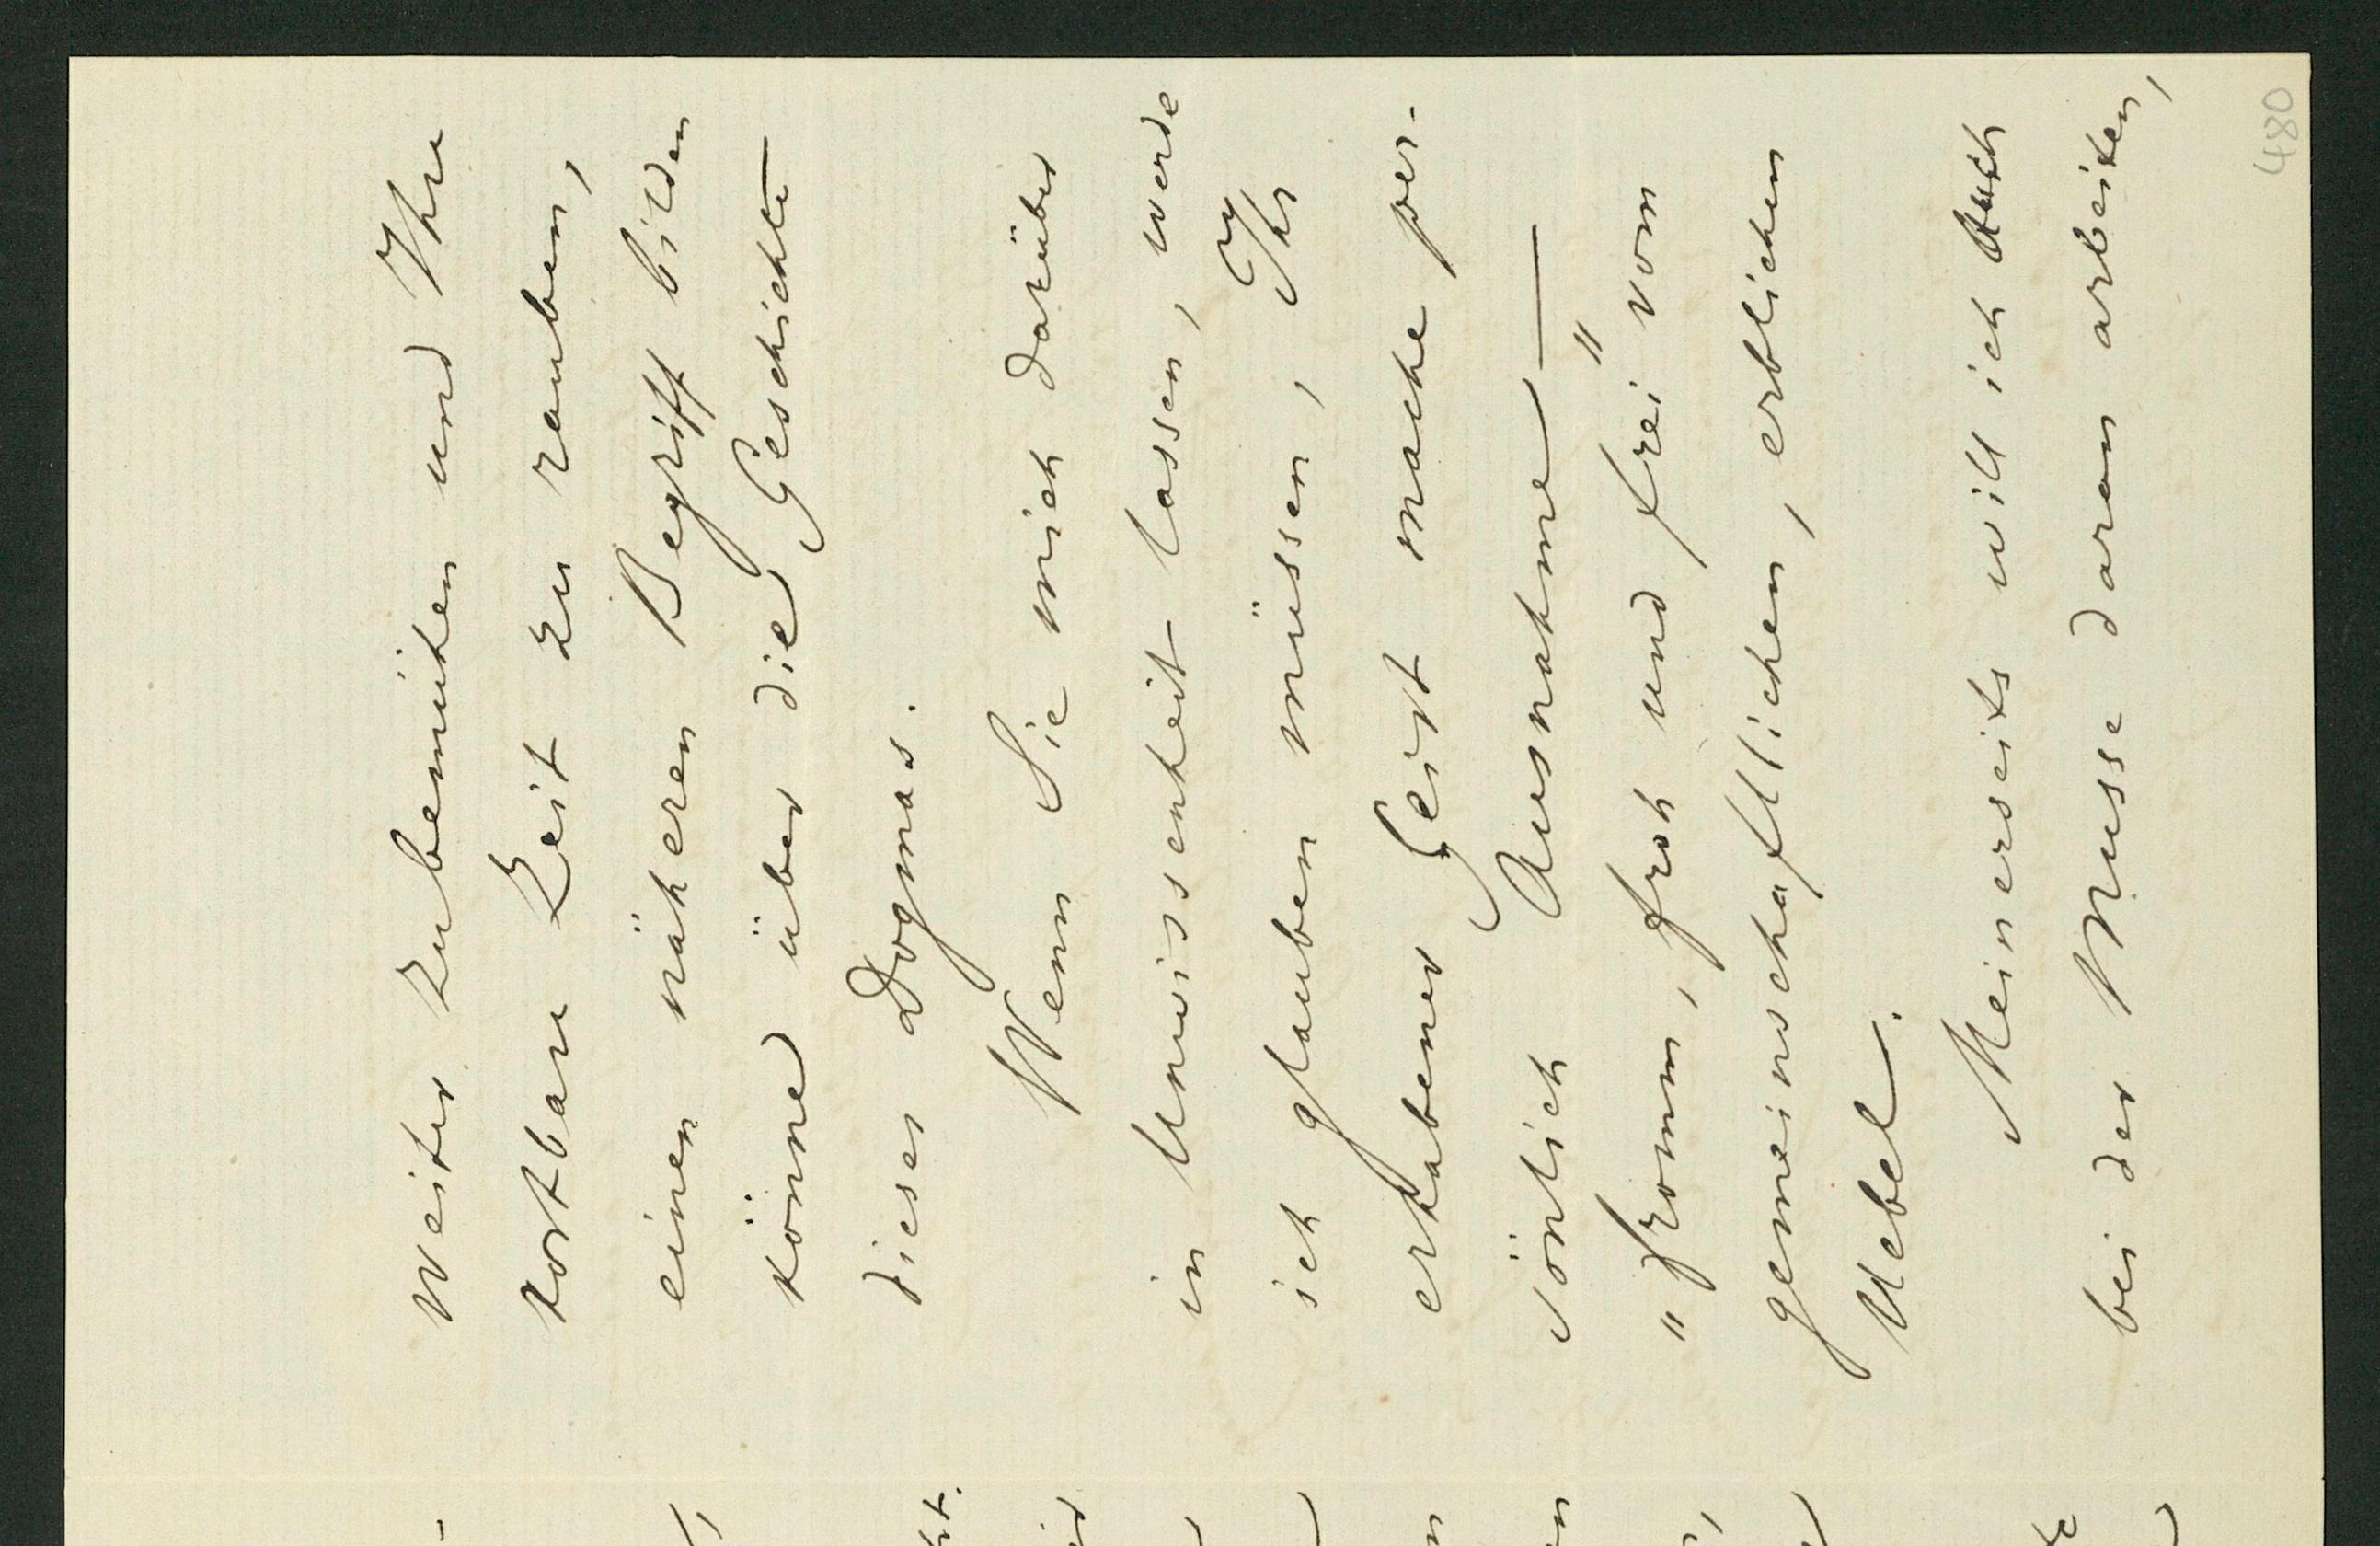 weiter zubemühen und Ihre
kostbare Zeit zu rauben,
einen näheren Begriff bilden
könne über die Geschichte
dieses Dogmas.
Wenn Sie mich darüber
in Unwissenheit lassen, werde
ich glauben müssen, Ihr
erhabener Geist mache per-
sönlich Ausnahme —
„fromm, froh und frei" vom
gemeinschaftlichen, erblichen
Uebel.
Meinerseits will ich auch
bei der Musse daran arbeiten,
480